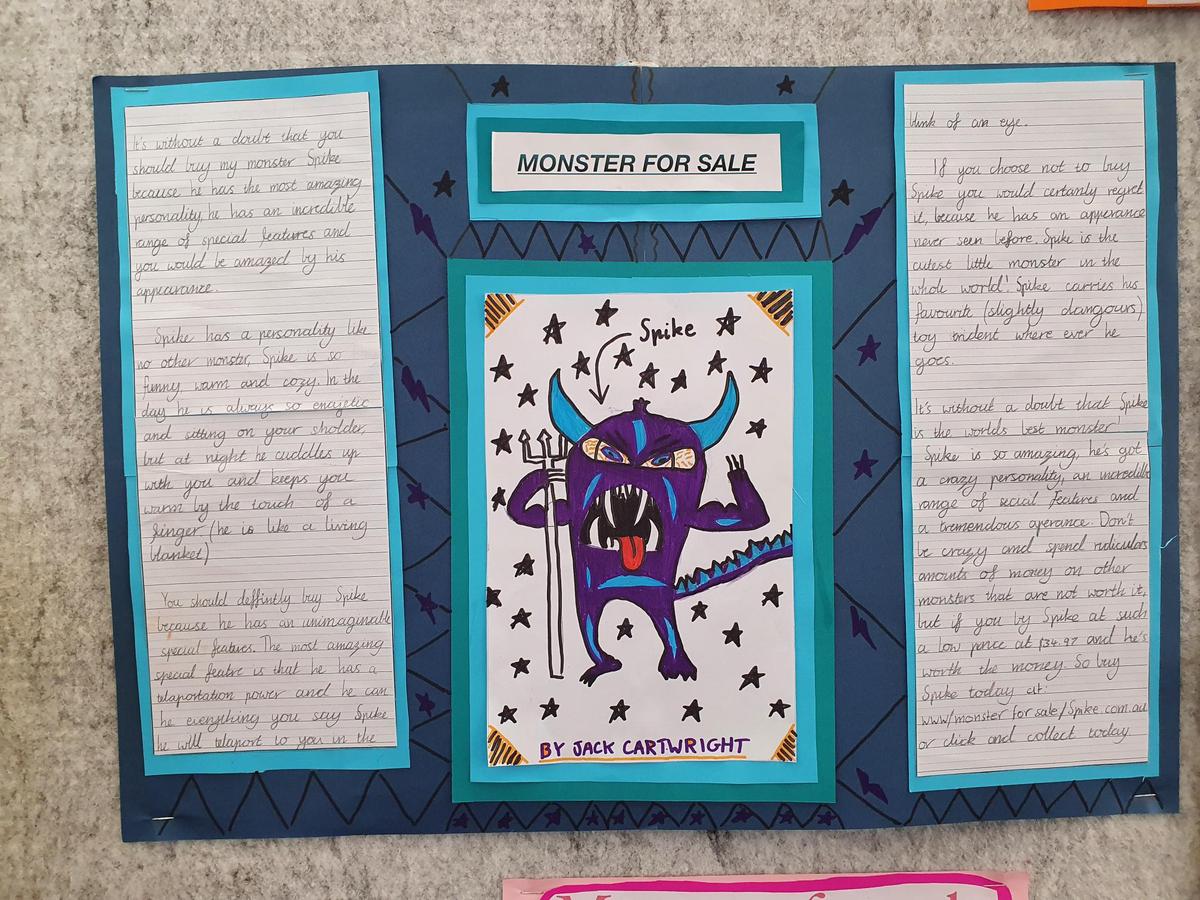 It's without a doubt that you
should buy my monster Spike
because he has the most amazing
personality he has an incredible
range of special features and
you would be amazed by his
appearance.
Spike has a personality like
no other monster, Spike is so
funny warm and cozy. In the
day he is always so enajetic
and sitting on your sholder,
but at night he cuddles up
with you and keeps you
warm by the touch of a
finger (he is like a living
blanket)
You should deffintly buy Spike
because he has an unimaginable
special featurs. The most amazing
special featre is that he has a
telaportation power and he can
he everything you say Spike
he will telaport to you in the
MONSTER FOR SALE
Spike
BY JACK CARTWRIGHT
blink of an eye.
If you choose not to buy
Spike you would certanly regret
it, because he has an apperance
never seen before. Spike is the
cutest little monster in the
whole world! Spike carries his
favourite (slightly dangours)
toy trident where ever he
goes.
It's without a doubt that Spike
is the worlds best monster!
Spike is so amazing, he's got
a crazy personality, an incredible
range of secial features and
a tremendous aperance. Don't
be crazy and spend ridiculars
amounts of money on other
monsters that are not worth it,
but if you by Spike at such
a low price at $34.97 and he's
worth the money. So buy
Spike today at:
www/monster for sale/Spike.com.au
or click and collect today